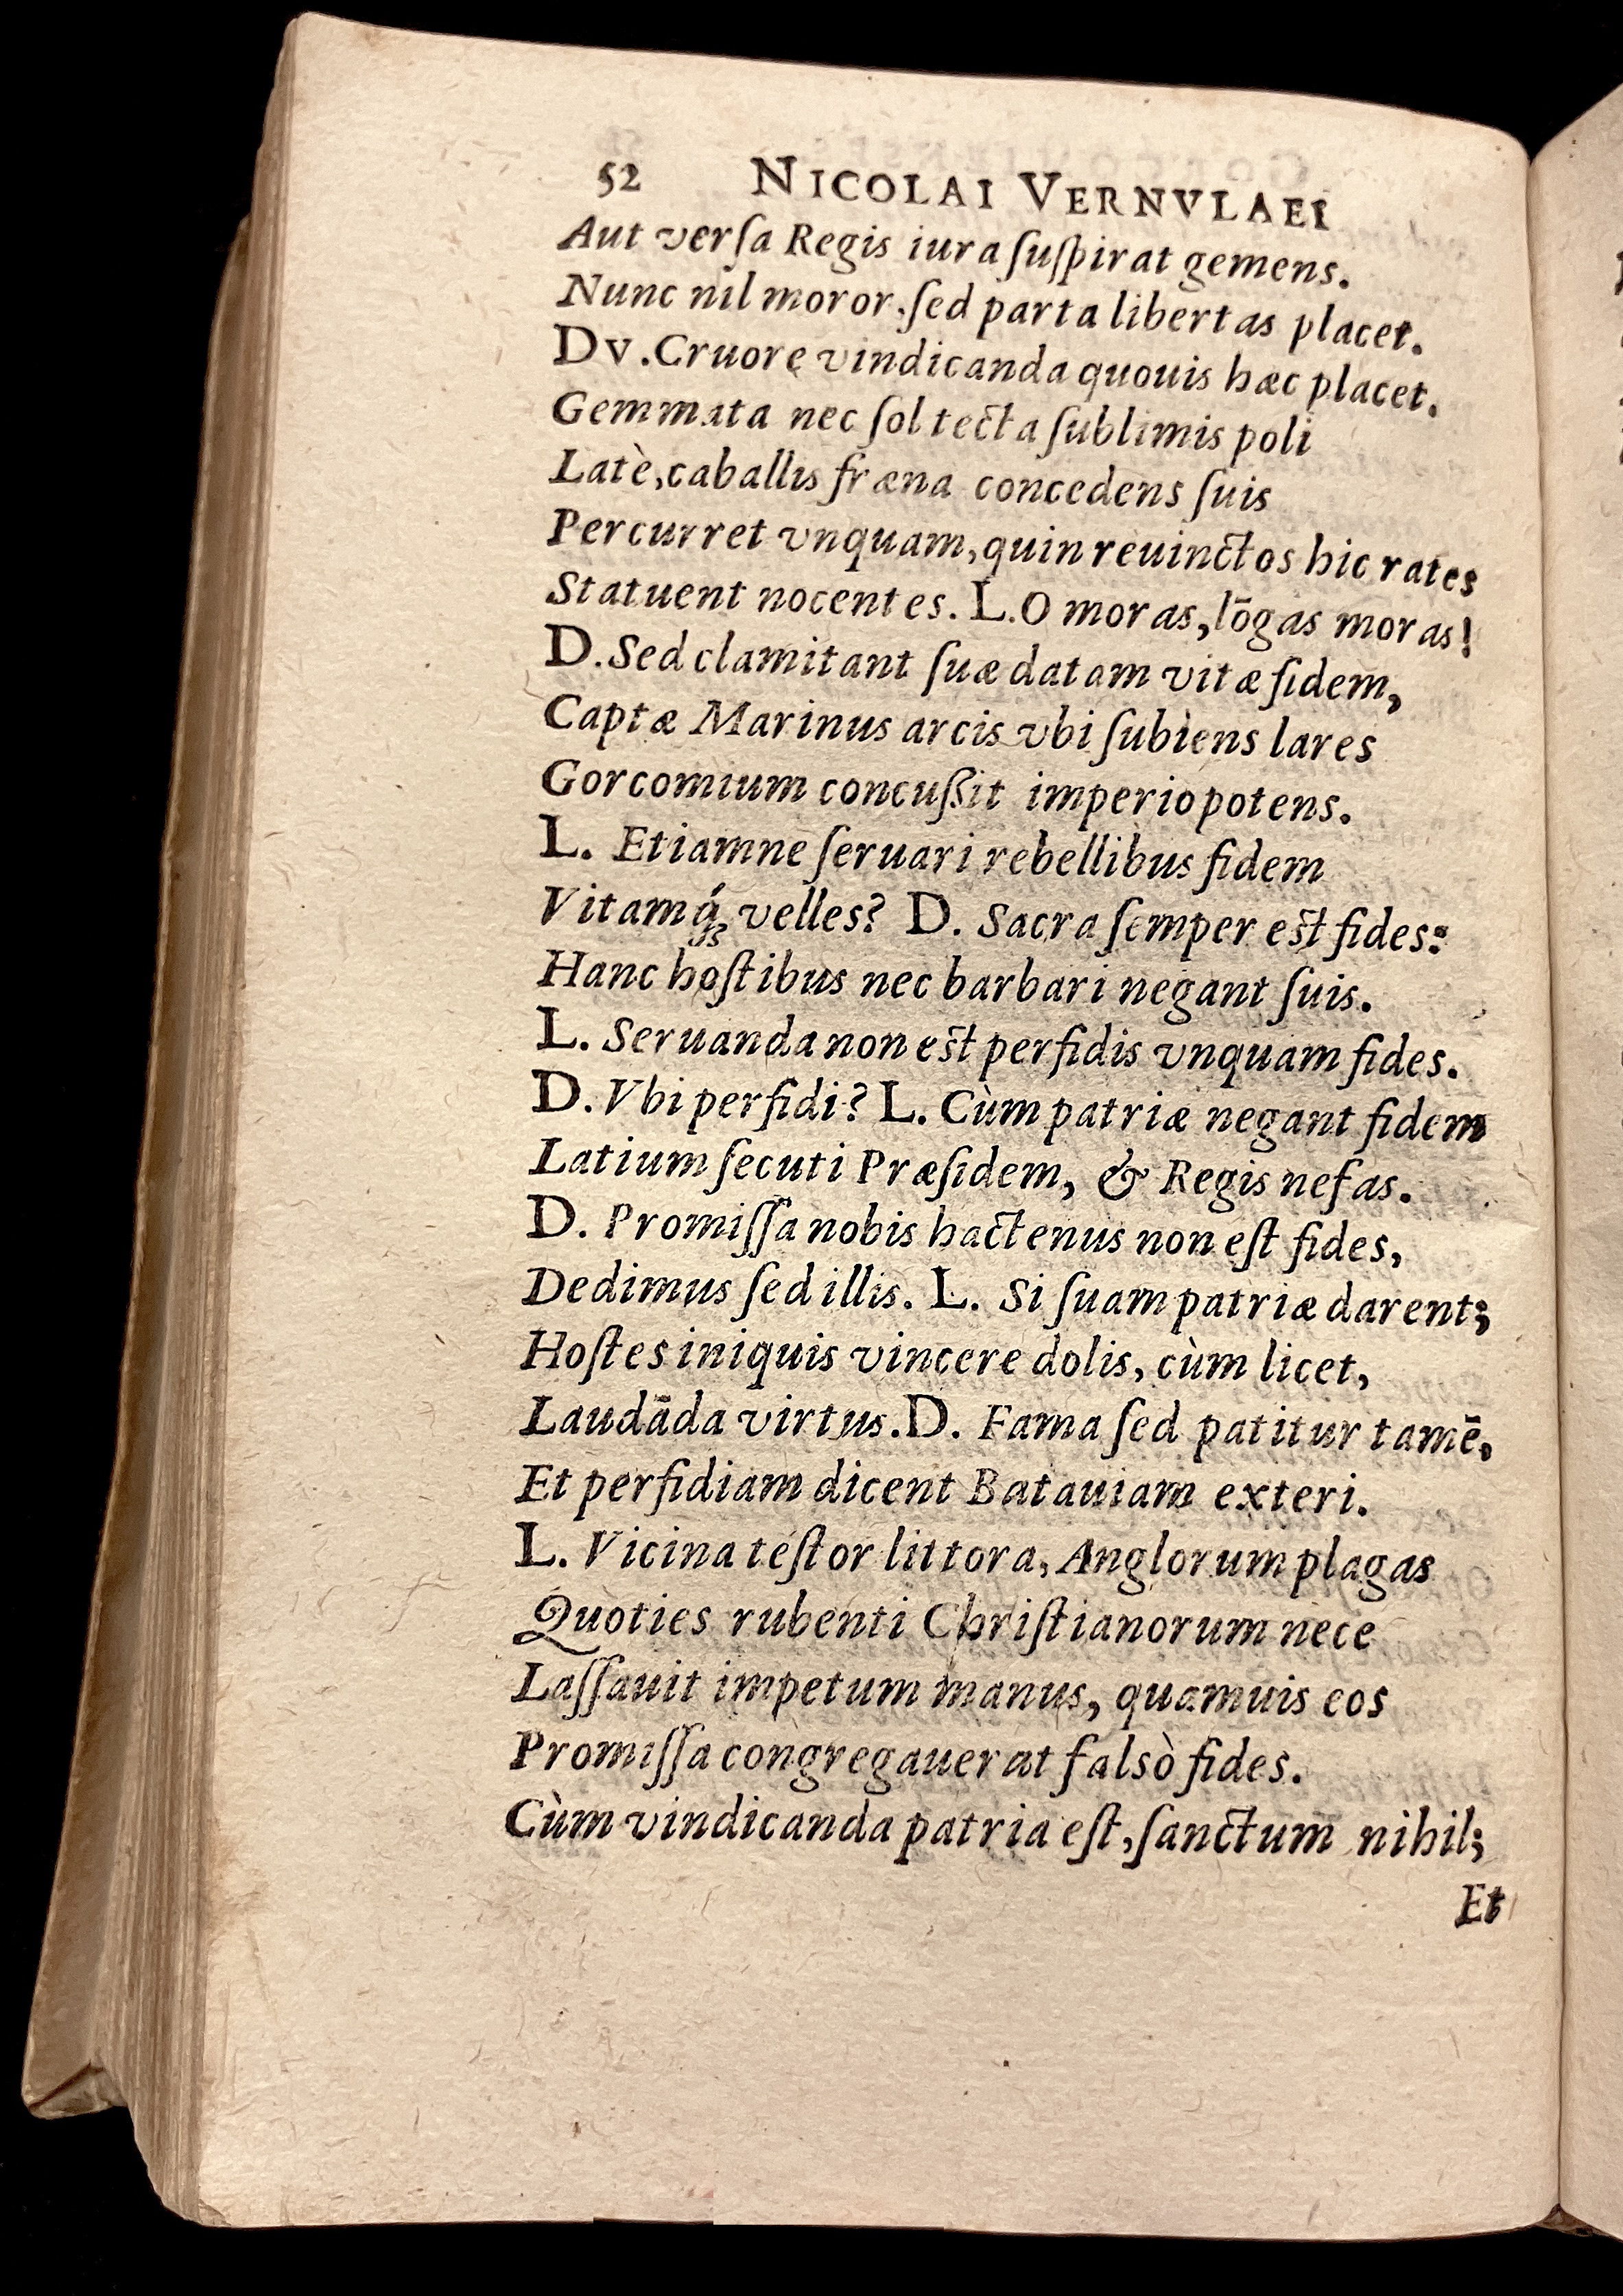 52 NICOLAI VERNVLAEI
Aut verſa Regis iura ſuſpirat gemens.
Nunc nil moror. ſed parta libertas placet.
Dv. Cruore vindicanda quouis hæc placet.
Gemmata nec ſol tecta ſublimis poli
Latè, caballis fræna concedens ſuis
Percurret vnquam, quin reuinctos hic rates
Statuent nocentes. L. O moras, lōgas moras!
D. Sed clamitant ſuæ datam vitæ fidem,
Captæ Marinus arcis vbi ſubiens lares
Gorcomium concuſſit imperio potens.
L. Etiamne ſeruari rebellibus fidem
Vitamq́ꝫ velles? D. Sacra ſemper eſt fides:
Hanc hoſtibus nec barbari negant ſuis.
L. Seruanda non eſt perfidis vnquam fides.
D. Vbi perfidi? L. Cùm patriæ negant fidem
Latium ſecuti Præſidem, & Regis nefas.
D. Promiſſa nobis hactenus non eſt fides,
Dedimus ſed illis. L. Si ſuam patriæ darent;
Hoſtes iniquis vincere dolis, cùm licet,
Laudāda virtus. D. Fama ſed patitur tamē,
Et perfidiam dicent Batauiam exteri.
L. Vicina teſtor littora, Anglorum plagas
Quoties rubenti Chriſtianorum nece
Laſſauit impetum manus, quamuis eos
Promiſſa congregauerat falsò fides.
Cùm vindicanda patria eſt, ſanctum nihil;
Et